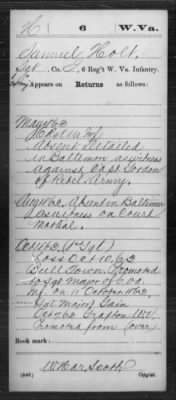 H | 6 | W.Va.
Samuel Holt.
Sgt, Co. J, 6 Reg't W. Va. Infantry.
Appears on Returns as follows:
May 1863
Absent Detailed
in Baltimore as witness
against Capt Gordon
of Rebel Army.
Aug 1863, Absent in Baltimore
as witness on Court
Martial.
Oct 1863 (1st Sgt)
Loss Oct 10, 63
Bull Town. Promoted
to Sgt Major of 6 Va.
Inf. on 11 October 1863.
Sgt Major Gain
Oct 1863 Grafton
Promoted from (over)
Book mark:
(546)
Copyist.